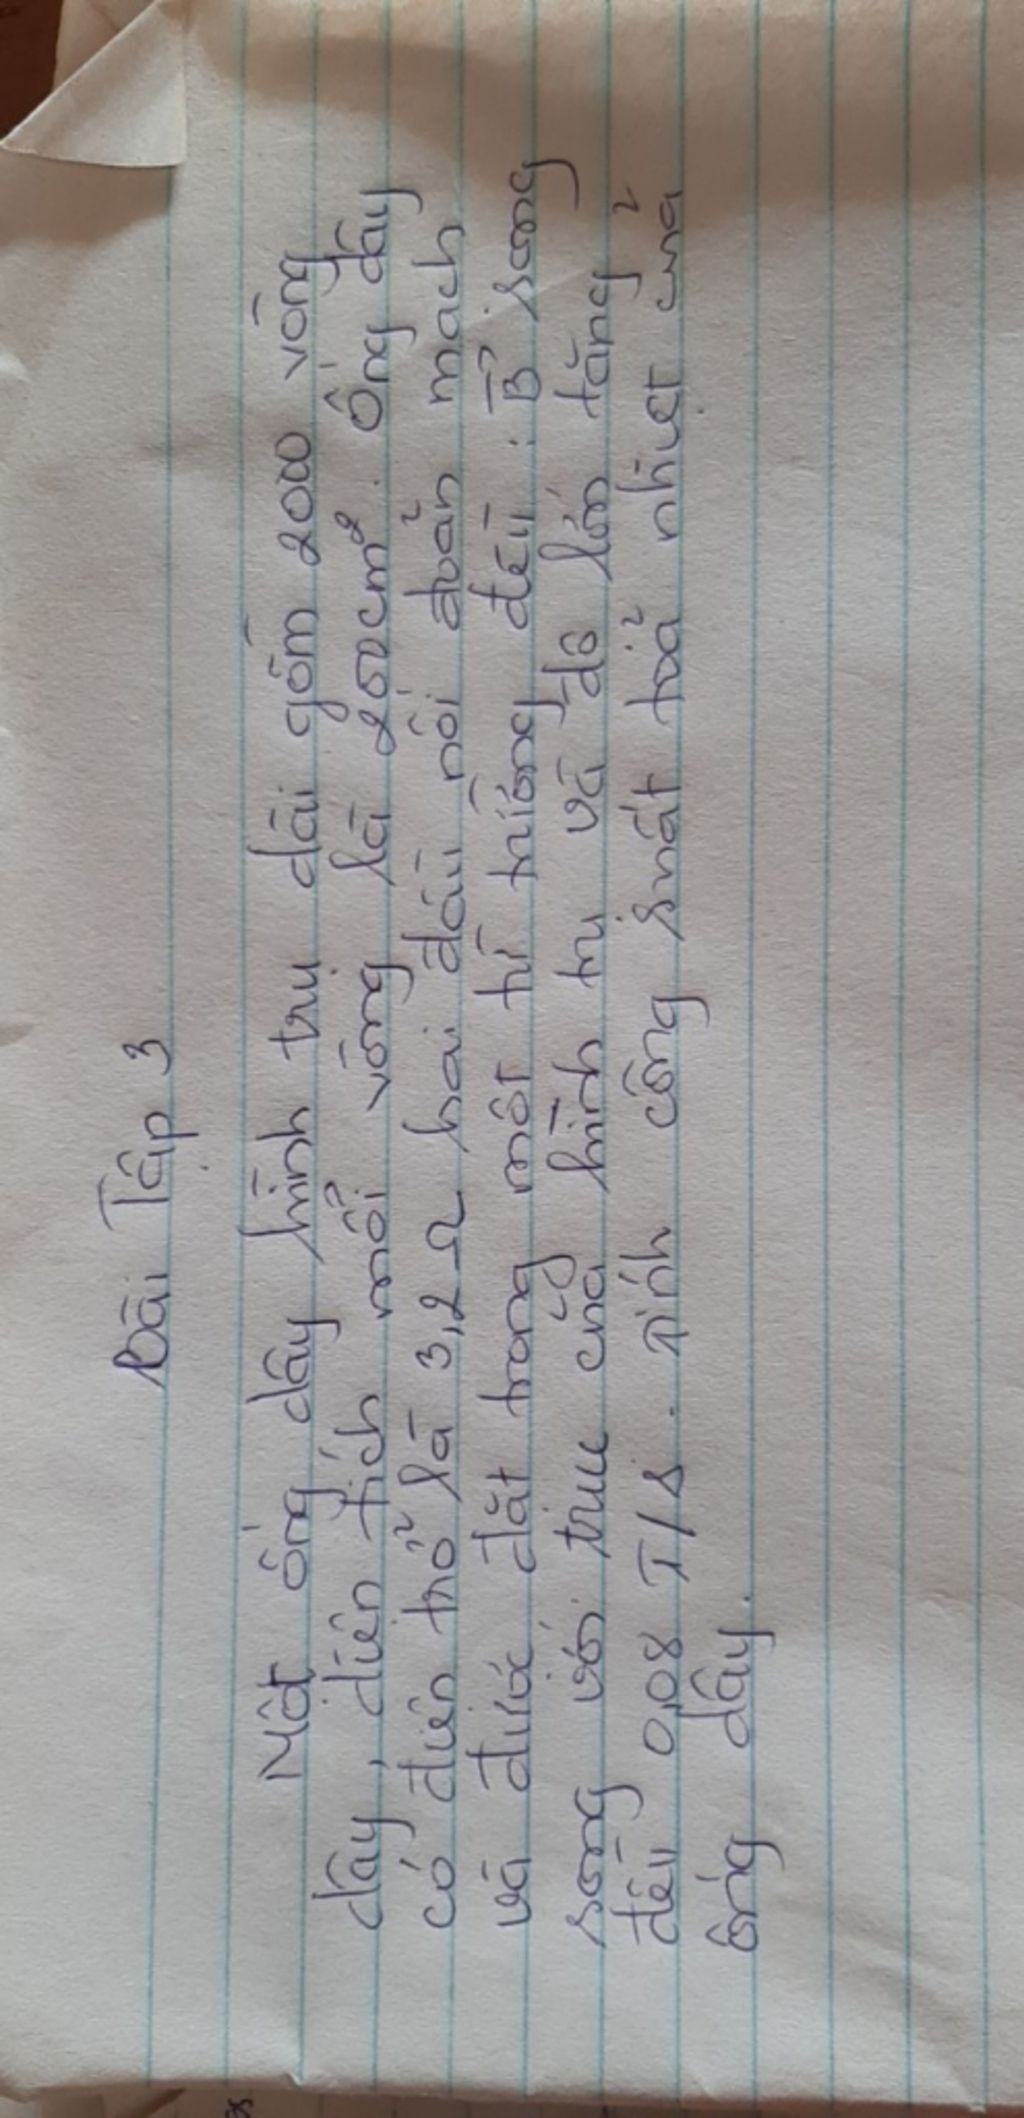 Bài Tập 3
Một ống dây hình trụ dài gồm 2000 vòng
dây, diện tích mỗi vòng là 250cm². Ống dây
có điện trở là 3,2 Ω hai đầu nối đoản mạch
và được đặt trong một từ trường đều: B⃗ song
song với trục của hình trụ và độ lớn tăng
đều 0,08 T/s. Tính công suất toả nhiệt của
ống dây.